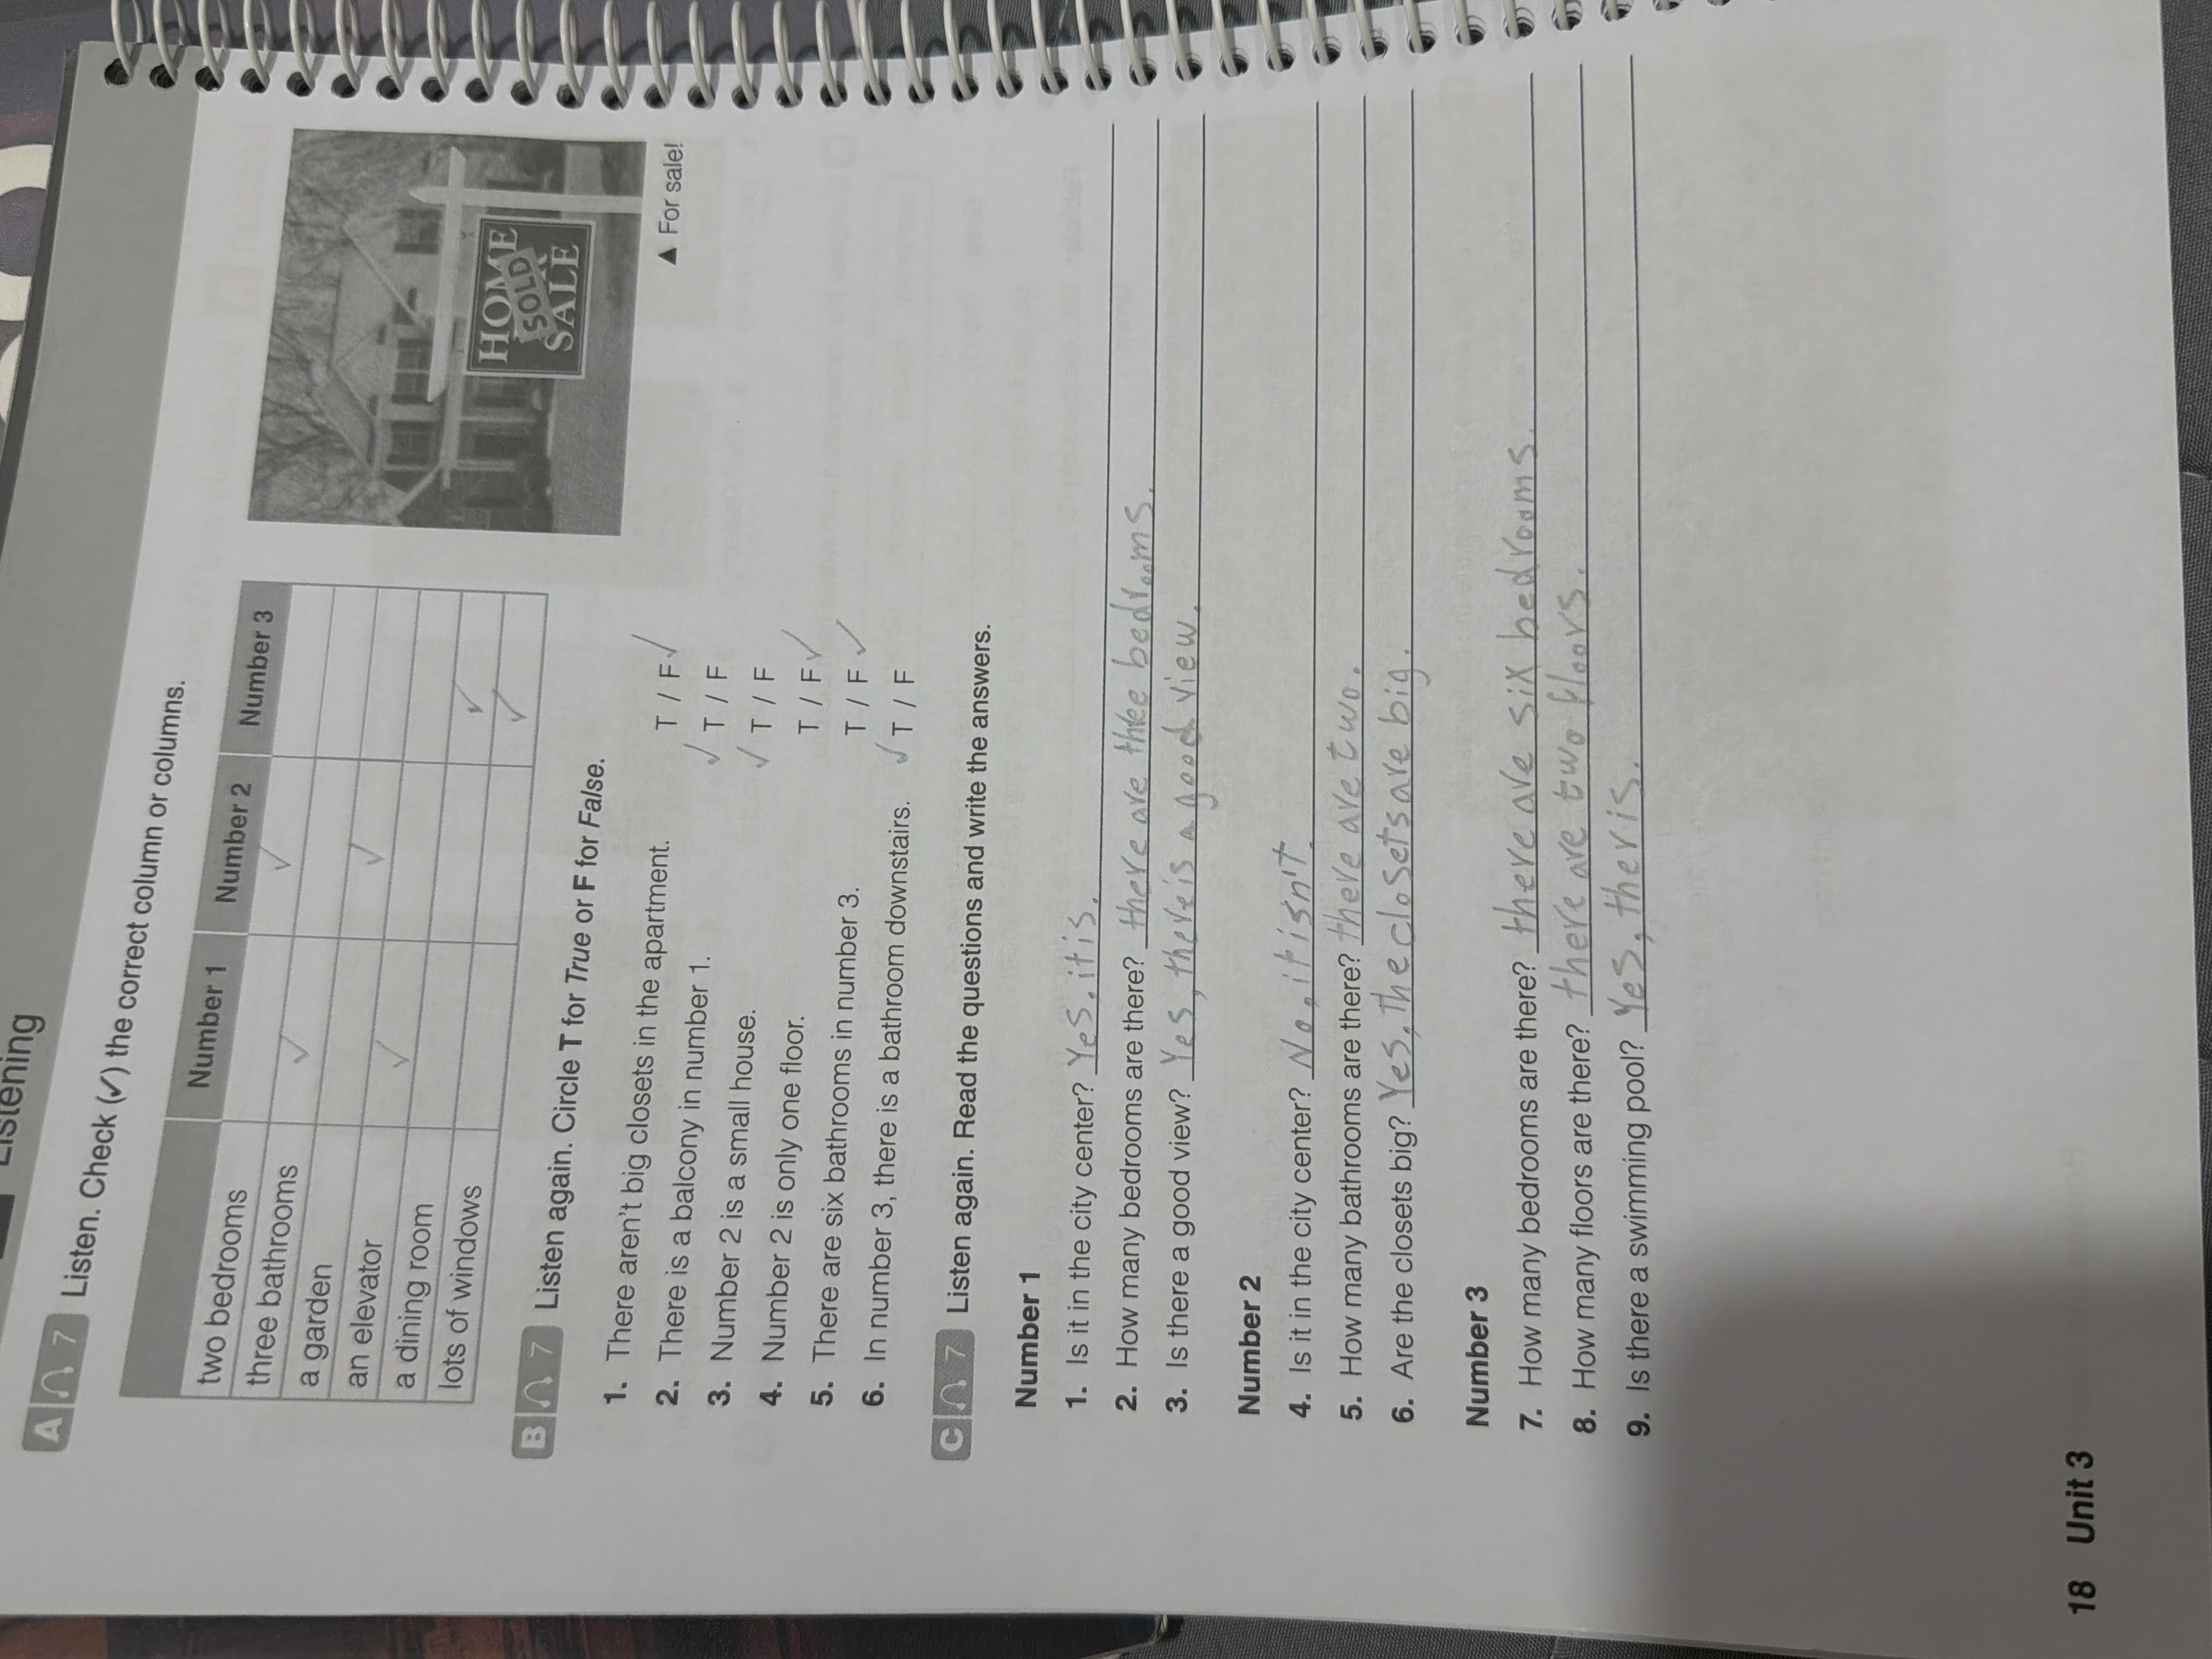 Listening
A 7 Listen. Check (✓) the correct column or columns.
Number 1 Number 2 Number 3
two bedrooms ✓
three bathrooms ✓
a garden ✓
an elevator ✓
a dining room ✓
lots of windows ✓
HOME
SOLD
SALE
▲ For sale!
B 7 Listen again. Circle T for True or F for False.
1. There aren't big closets in the apartment. T / F ✓
2. There is a balcony in number 1. ✓ T / F
3. Number 2 is a small house. ✓ T / F
4. Number 2 is only one floor. T / F ✓
5. There are six bathrooms in number 3. T / F ✓
6. In number 3, there is a bathroom downstairs. ✓ T / F
C 7 Listen again. Read the questions and write the answers.
Number 1
1. Is it in the city center? Yes, it is.
2. How many bedrooms are there? there are three bedrooms.
3. Is there a good view? Yes, there is a good view.
Number 2
4. Is it in the city center? No, it isn't.
5. How many bathrooms are there? there are two.
6. Are the closets big? Yes, the closets are big.
Number 3
7. How many bedrooms are there? there are six bedrooms.
8. How many floors are there? there are two floors.
9. Is there a swimming pool? Yes, ther is.
18 Unit 3